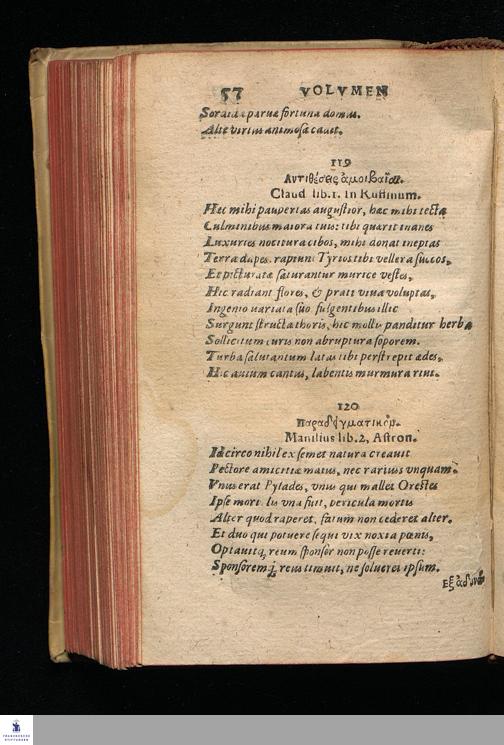 57 VOLVMEN
Sordida parue fortuna domus.
Alte virtus animosa cadit.
119
Αντιθέσεις ἀμοιβαῖαι.
Claud lib. 1. In Ruffinum.
Hec mihi paupertas augustior, hac mihi tecta
Culminibus maiora tuis: tibi quarit inanes
Luxuries nocitura cibos, mihi donat ineptas
Terra dapes. rapiunt Tyrios tibi vellera succos,
Et picturata saturantur murice vestes,
Hic radiant flores, & prati viva voluptas,
Ingenio variata suo fulgentibus illic
Surgunt structa thoris, hic mollis panditur herba
Sollicitum curis non abruptura soporem.
Turba salutantum latas tibi perstrepit ædes,
Hic auium cantus, labentis murmura riui.
120
Manilius lib. 2, Astron.
Idcirco nihil ex semet natura creauit
Pectore amicitiæ maius, nec rarius vnquam.
Vnus erat Pylades, vnus qui mallet Orestes
Ipse mori. lis vna fuit, pericula mortis
Alter quod raperet, fatum non cederet alter.
Et duo qui potuere sequi vix noxia pœnis,
Optauitq; reum sponsor non posse reuerti:
Sponsoremq; reus timuit, ne solueret ipsum.
FRANCKESCHE
STIFTUNGEN